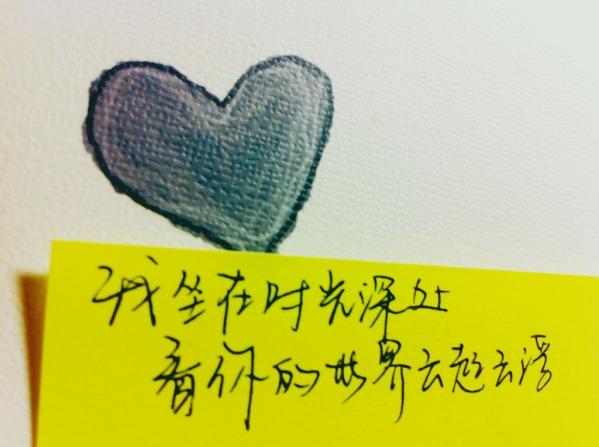 我坐在时光深处
看你的世界云起云落